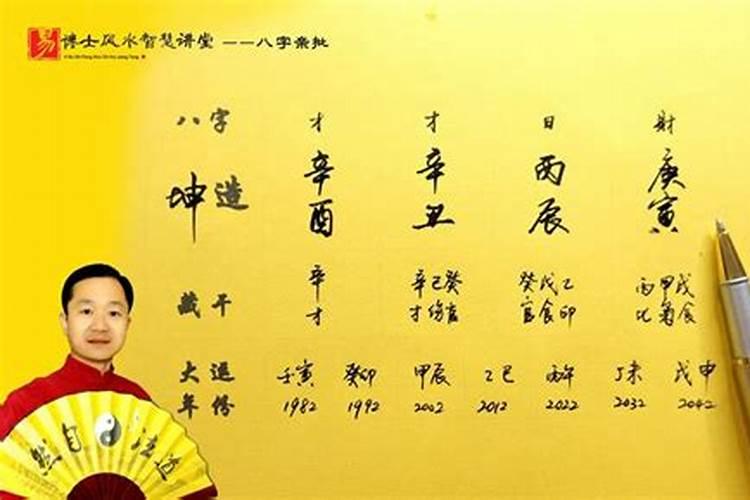 易 博士风水智慧讲堂 ——八字亲批
八字 才 才 日 财
坤造 辛 辛 丙 庚
酉 丑 辰 寅
藏干 辛 辛己癸 癸戊乙 丙甲戊
才 才伤官 官食印 比枭食
大运 壬寅 癸卯 甲辰 乙巳 丙午 丁未 戊申
年份 1982 1992 2002 2012 2022 2032 2042
然自法道